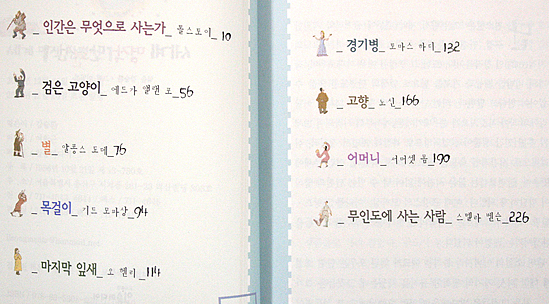 _ 인간은 무엇으로 사는가_ 톨스토이_ 10
_ 검은 고양이_ 에드가 앨런 포_56
_ 별_ 알퐁스 도데_76
_ 목걸이_ 기드 모파상_94
_ 마지막 잎새_ 오 헨리_114
_ 경기병_ 토마스 하디_132
_ 고향_ 노신_166
_ 어머니_ 서머셋 몸_190
_ 무인도에 사는 사람_ 스텔라 벤슨_226